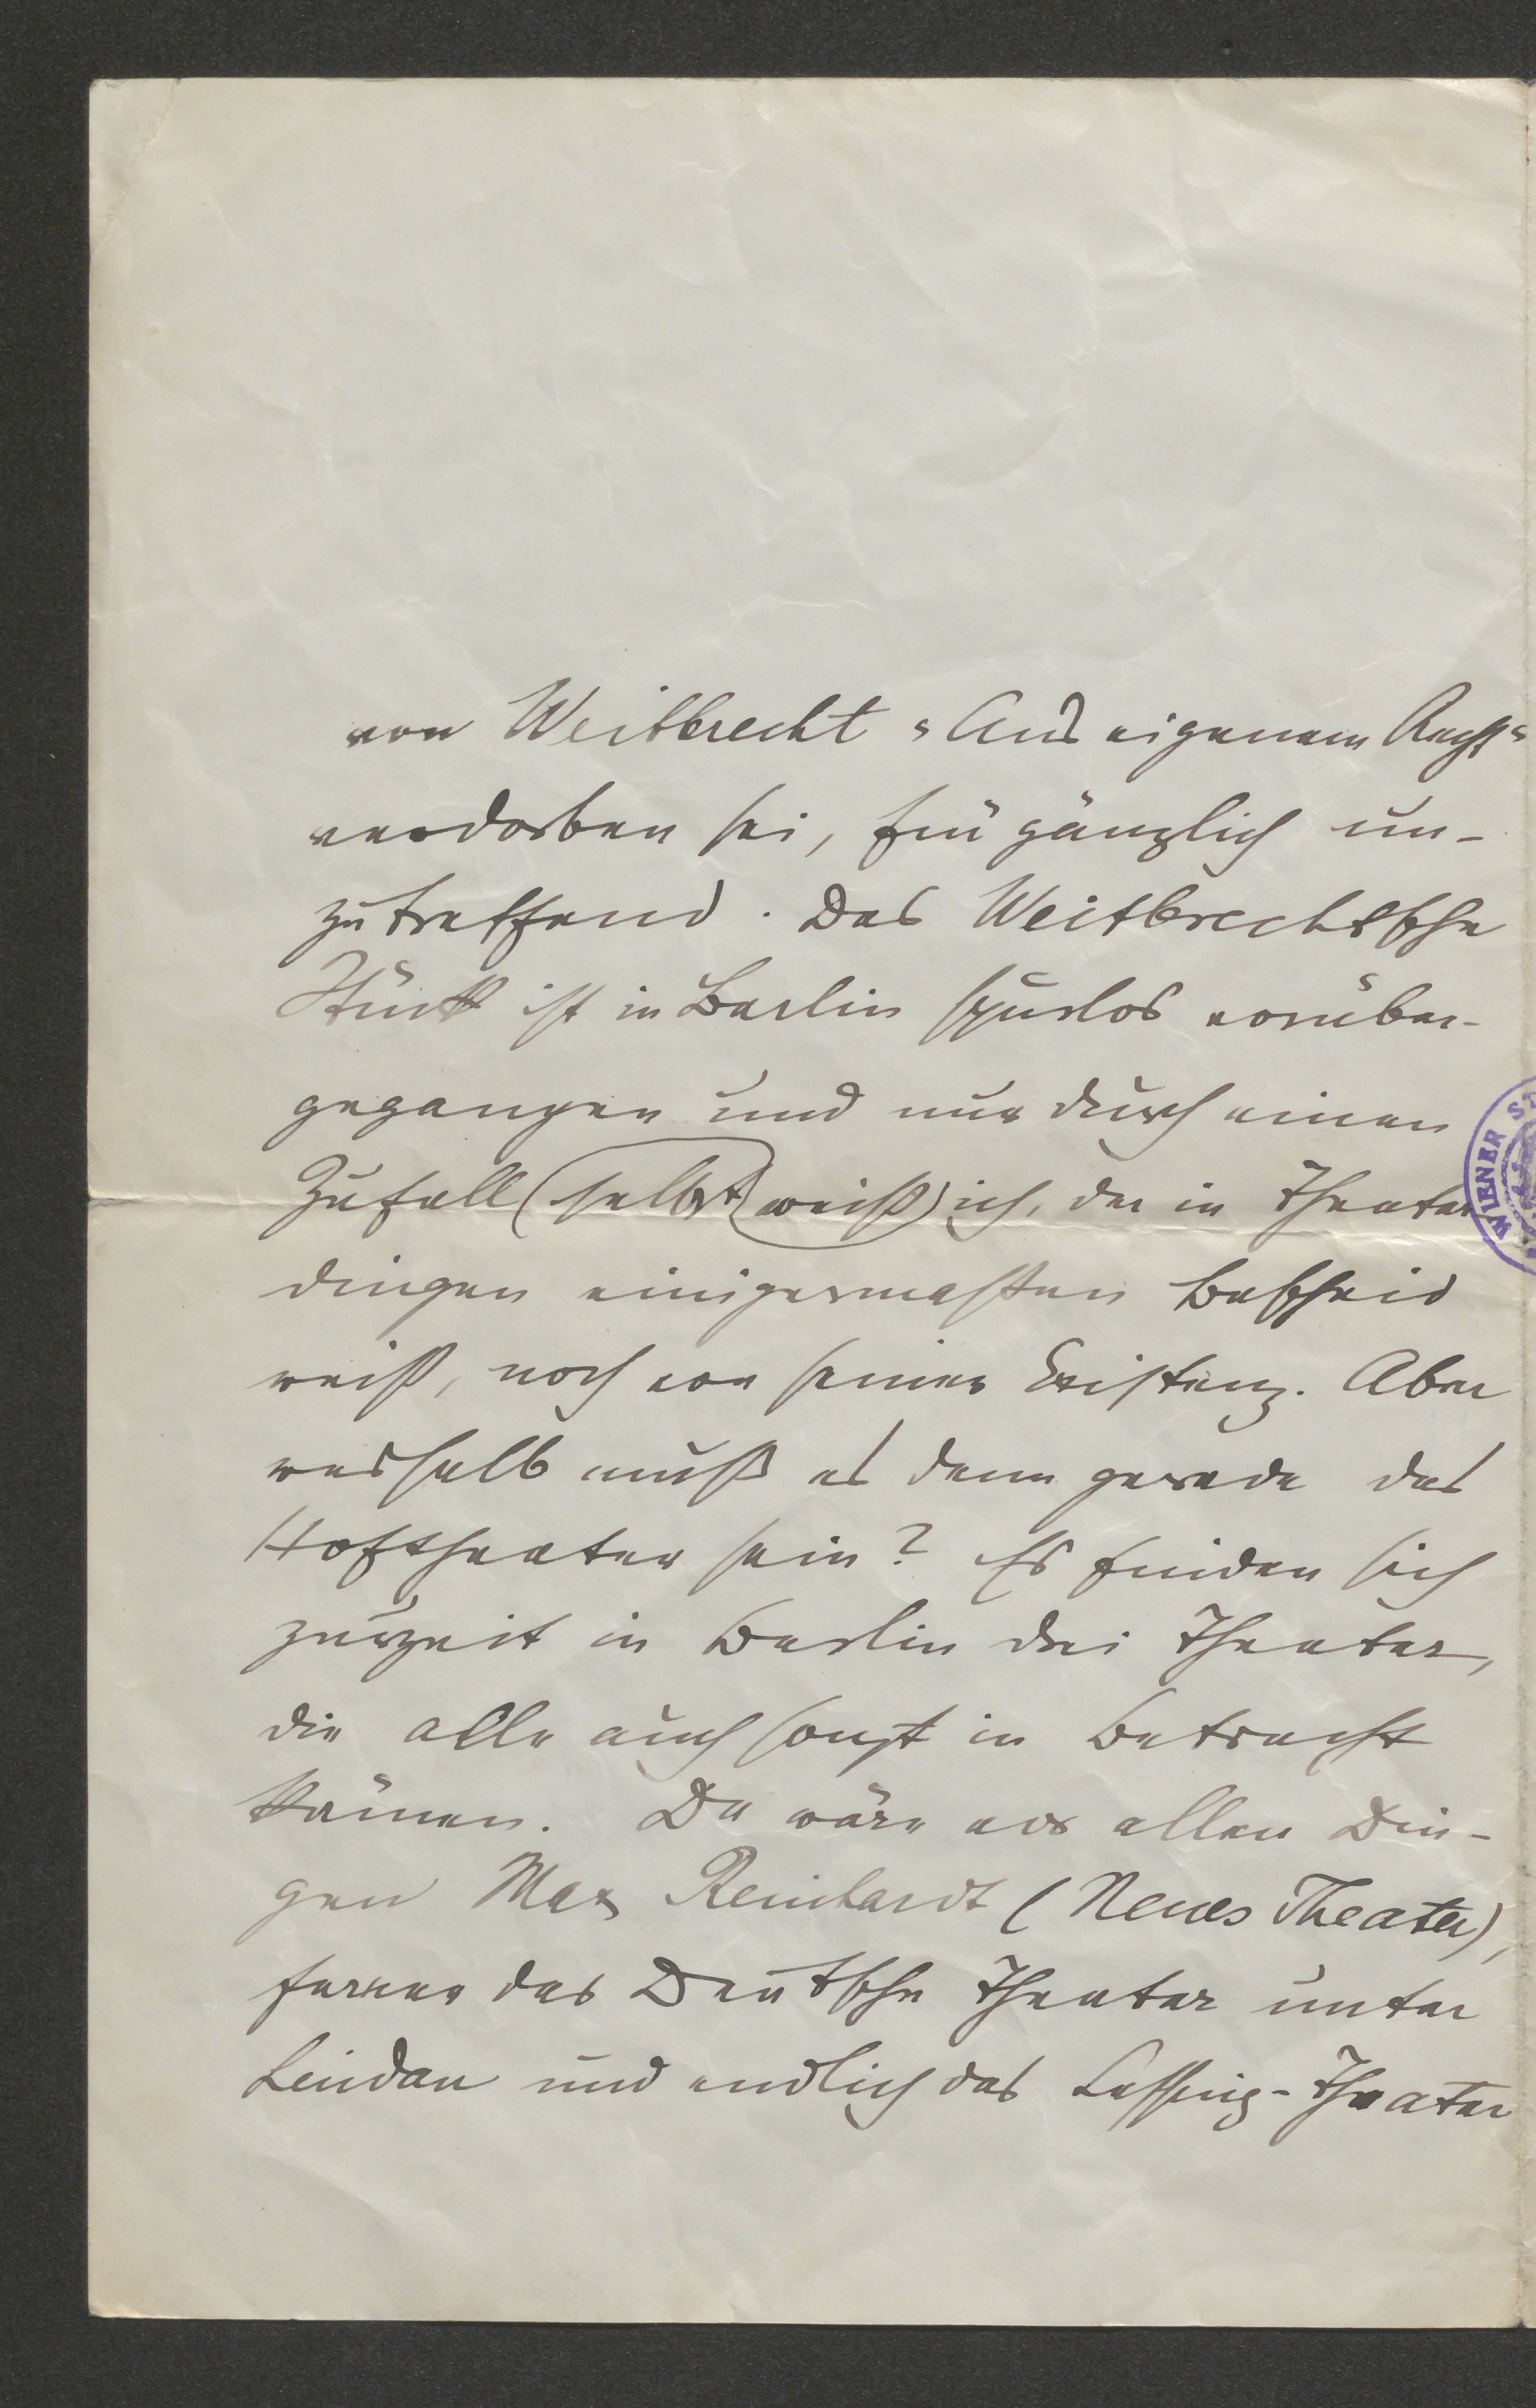 von Weitbrecht „Aus eigenem Recht“
verdorben sei, für gänzlich un-
zutreffend. Das Weitbrechtsche
Stück ist in Berlin spurlos vorüber-
gegangen und nur durch einen
Zufall (selbst) weiß) ich, der in Theater
dingen einigermassen Bescheid
weiß, noch von seiner Existenz. Aber
weshalb muß es denn gerade das
Hoftheater sein? Es finden sich
zurzeit in Berlin drei Theater,
die alle auch sonst in Betracht
kämen. Da wäre vor allen Din-
gen Max Reinhardt (Neues Theater),
ferner das Deutsche Theater unter
Lindau und endlich das Lessing-Theater
WIENER ST